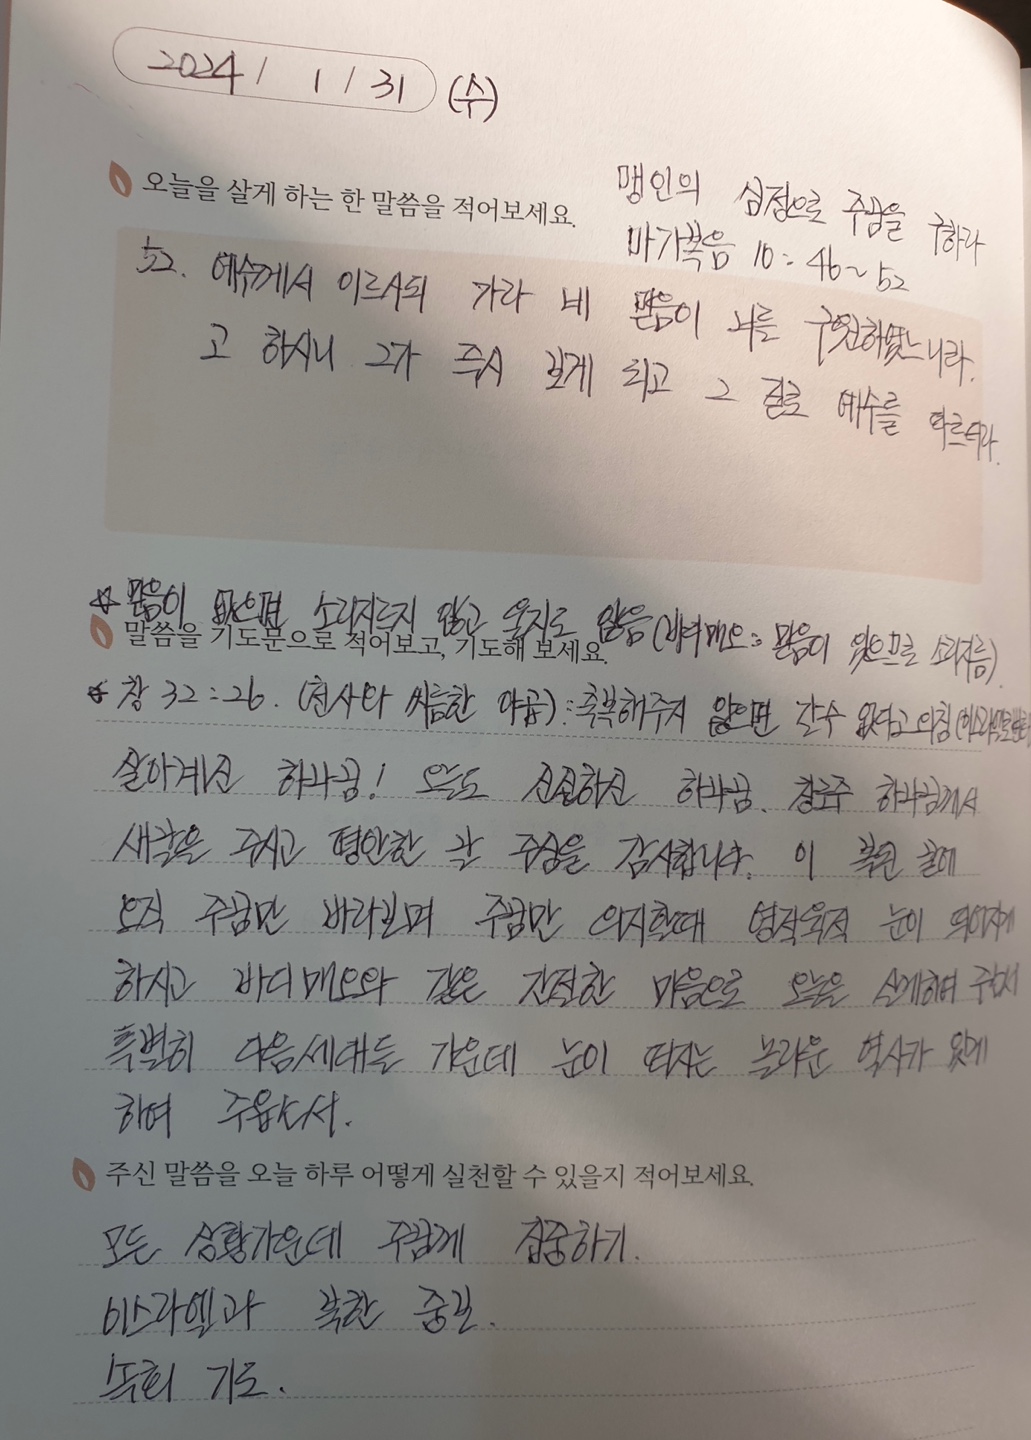 2024 / 1 / 31 (수)
오늘을 살게 하는 한 말씀을 적어보세요.
맹인의 심정으로 주님을 구하라
마가복음 10:46~52
52. 예수께서 이르시되 가라 네 믿음이 너를 구원하였느니라.
고 하시니 그가 곧 보게 되고 그 길로 예수를 따르니라.
믿음이 없으면 소리지르지 않고 오지도 않음 (바디매오: 믿음이 있으므로 소리지름)
말씀을 기도문으로 적어보고, 기도해 보세요.
창 32:26. (천사와 씨름한 야곱): 축복해주지 않으면 갈수 없다고 외침
살아계신 하나님! 오늘도 신실하신 하나님. 창조주 하나님께서
새날을 주시고 평안한 주심을 감사합니다. 이 복된 날에
오직 주님만 바라보며 주님만 의지할때 영적육적 눈이 떠지게
하시고 바디매오와 같은 간절한 마음으로 오늘을 살게하여 주소서
특별히 다음세대들 가운데 눈이 떠지는 놀라운 역사가 있게
하여 주옵소서.
주신 말씀을 오늘 하루 어떻게 실천할 수 있을지 적어보세요.
모든 상황가운데 주님께 집중하기.
이스라엘과 북한 중보.
기도.